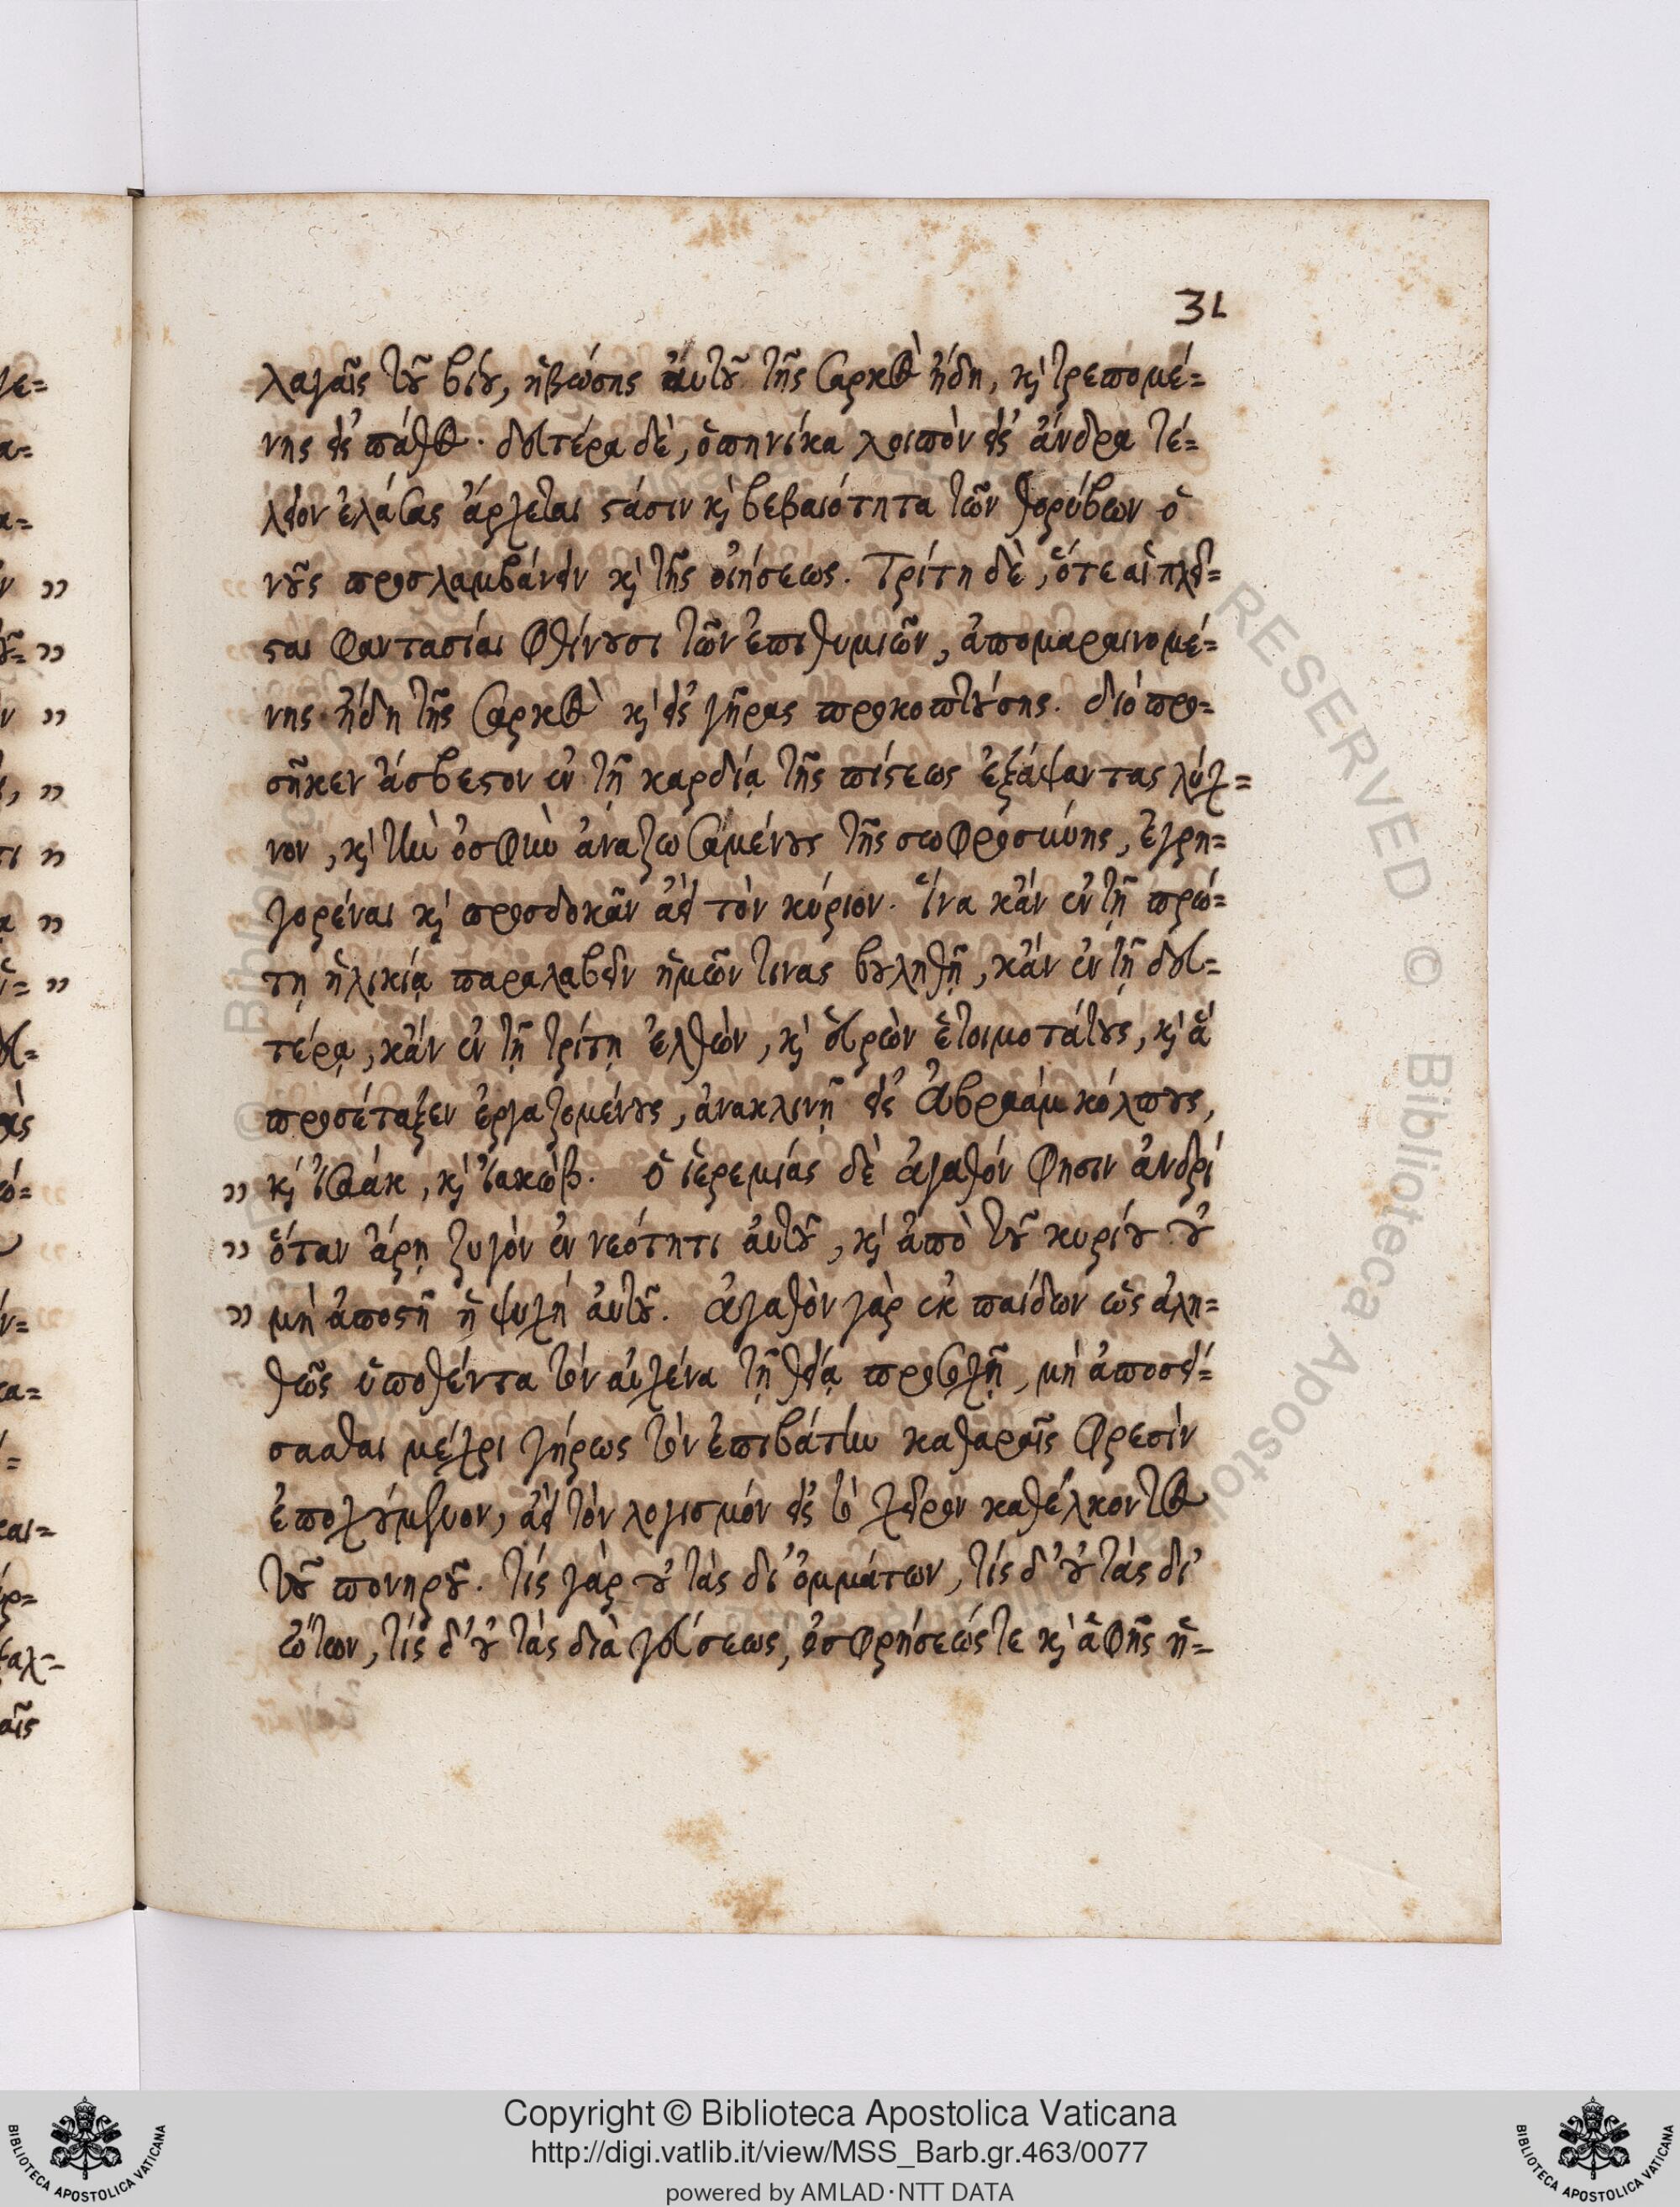 31
λαγαῖς τοῦ βίου, ἡβώσης αὐτοῦ τῆς σαρκὸς ἤδη, καὶ τρεπομέ=
νης εἰς πάθος. δευτέρα δὲ, ὁπηνίκα λοιπὸν εἰς ἄνδρα τέ=
λειον ἐλάσας ἄρχεται στάσιν καὶ βεβαιότητα τῶν θορύβων ὁ
νοῦς προσλαμβάνειν καὶ τῆς οἰήσεως. Τρίτη δὲ, ὅτε αἱ πλεῖ=
σται φαντασίαι φθίνουσι τῶν ἐπιθυμιῶν, ἀπομαραινομέ=
νης ἤδη τῆς σαρκὸς καὶ εἰς γῆρας προκοπτούσης. διό προ=
σῆκεν ἄσβεστον ἐν τῇ καρδίᾳ τῆς πίστεως ἐξάψαντας λύχ=
νον, καὶ τὴν ὀσφὺν ἀναζωσαμένους τῆς σωφροσύνης, ἐγρη=
γορέναι καὶ προσδοκᾶν ἀεὶ τὸν κύριον. ἵνα κἂν ἐν τῇ πρώ=
τῃ ἡλικίᾳ παραλαβεῖν ἡμῶν τινας βουληθῇ, κἂν ἐν τῇ δευ=
τέρᾳ, κἂν ἐν τῇ τρίτῃ ἐλθὼν, καὶ εὑρὼν ἑτοιμοτάτους, καὶ ἃ
προσέταξεν ἐργαζομένους, ἀνακλινῇ εἰς Ἀβραὰμ κόλπους,
" καὶ ἰσαάκ, καὶ ἰακώβ. ὁ ἱερεμίας δὲ ἀγαθόν φησιν ἀνδρί
" ὅταν ἄρῃ ζυγὸν ἐν νεότητι αὐτοῦ, καὶ ἀπὸ τοῦ κυρίου οὐ
" μὴ ἀποστῇ ἡ ψυχή αὐτοῦ. ἀγαθὸν γὰρ ἐκ παίδων ὡς ἀλη=
θῶς ὑποθέντα τὸν αὐχένα τῇ θείᾳ προσοχῇ, μὴ ἀποσεί=
σασθαι μέχρι γήρως τὸν ἐπιβάτην καθαραῖς φρεσὶν
ἐποχούμενον, ἀεὶ τὸν λογισμόν εἰς τὸ χεῖρον καθέλκοντος
τοῦ πονηροῦ. τίς γὰρ οὐ τὰς δι' ὀμμάτων, τίς δ' οὐ τὰς δι'
ὤτων, τίς δ' οὐ τὰς διὰ γεύσεως, ὀσφρήσεώς τε καὶ ἁφῆς ἡ=
Copyright © Biblioteca Apostolica Vaticana
http://digi.vatlib.it/view/MSS_Barb.gr.463/0077
powered by AMLAD·NTT DATA
BIBLIOTECA APOSTOLICA VATICANA
BIBLIOTECA APOSTOLICA VATICANA